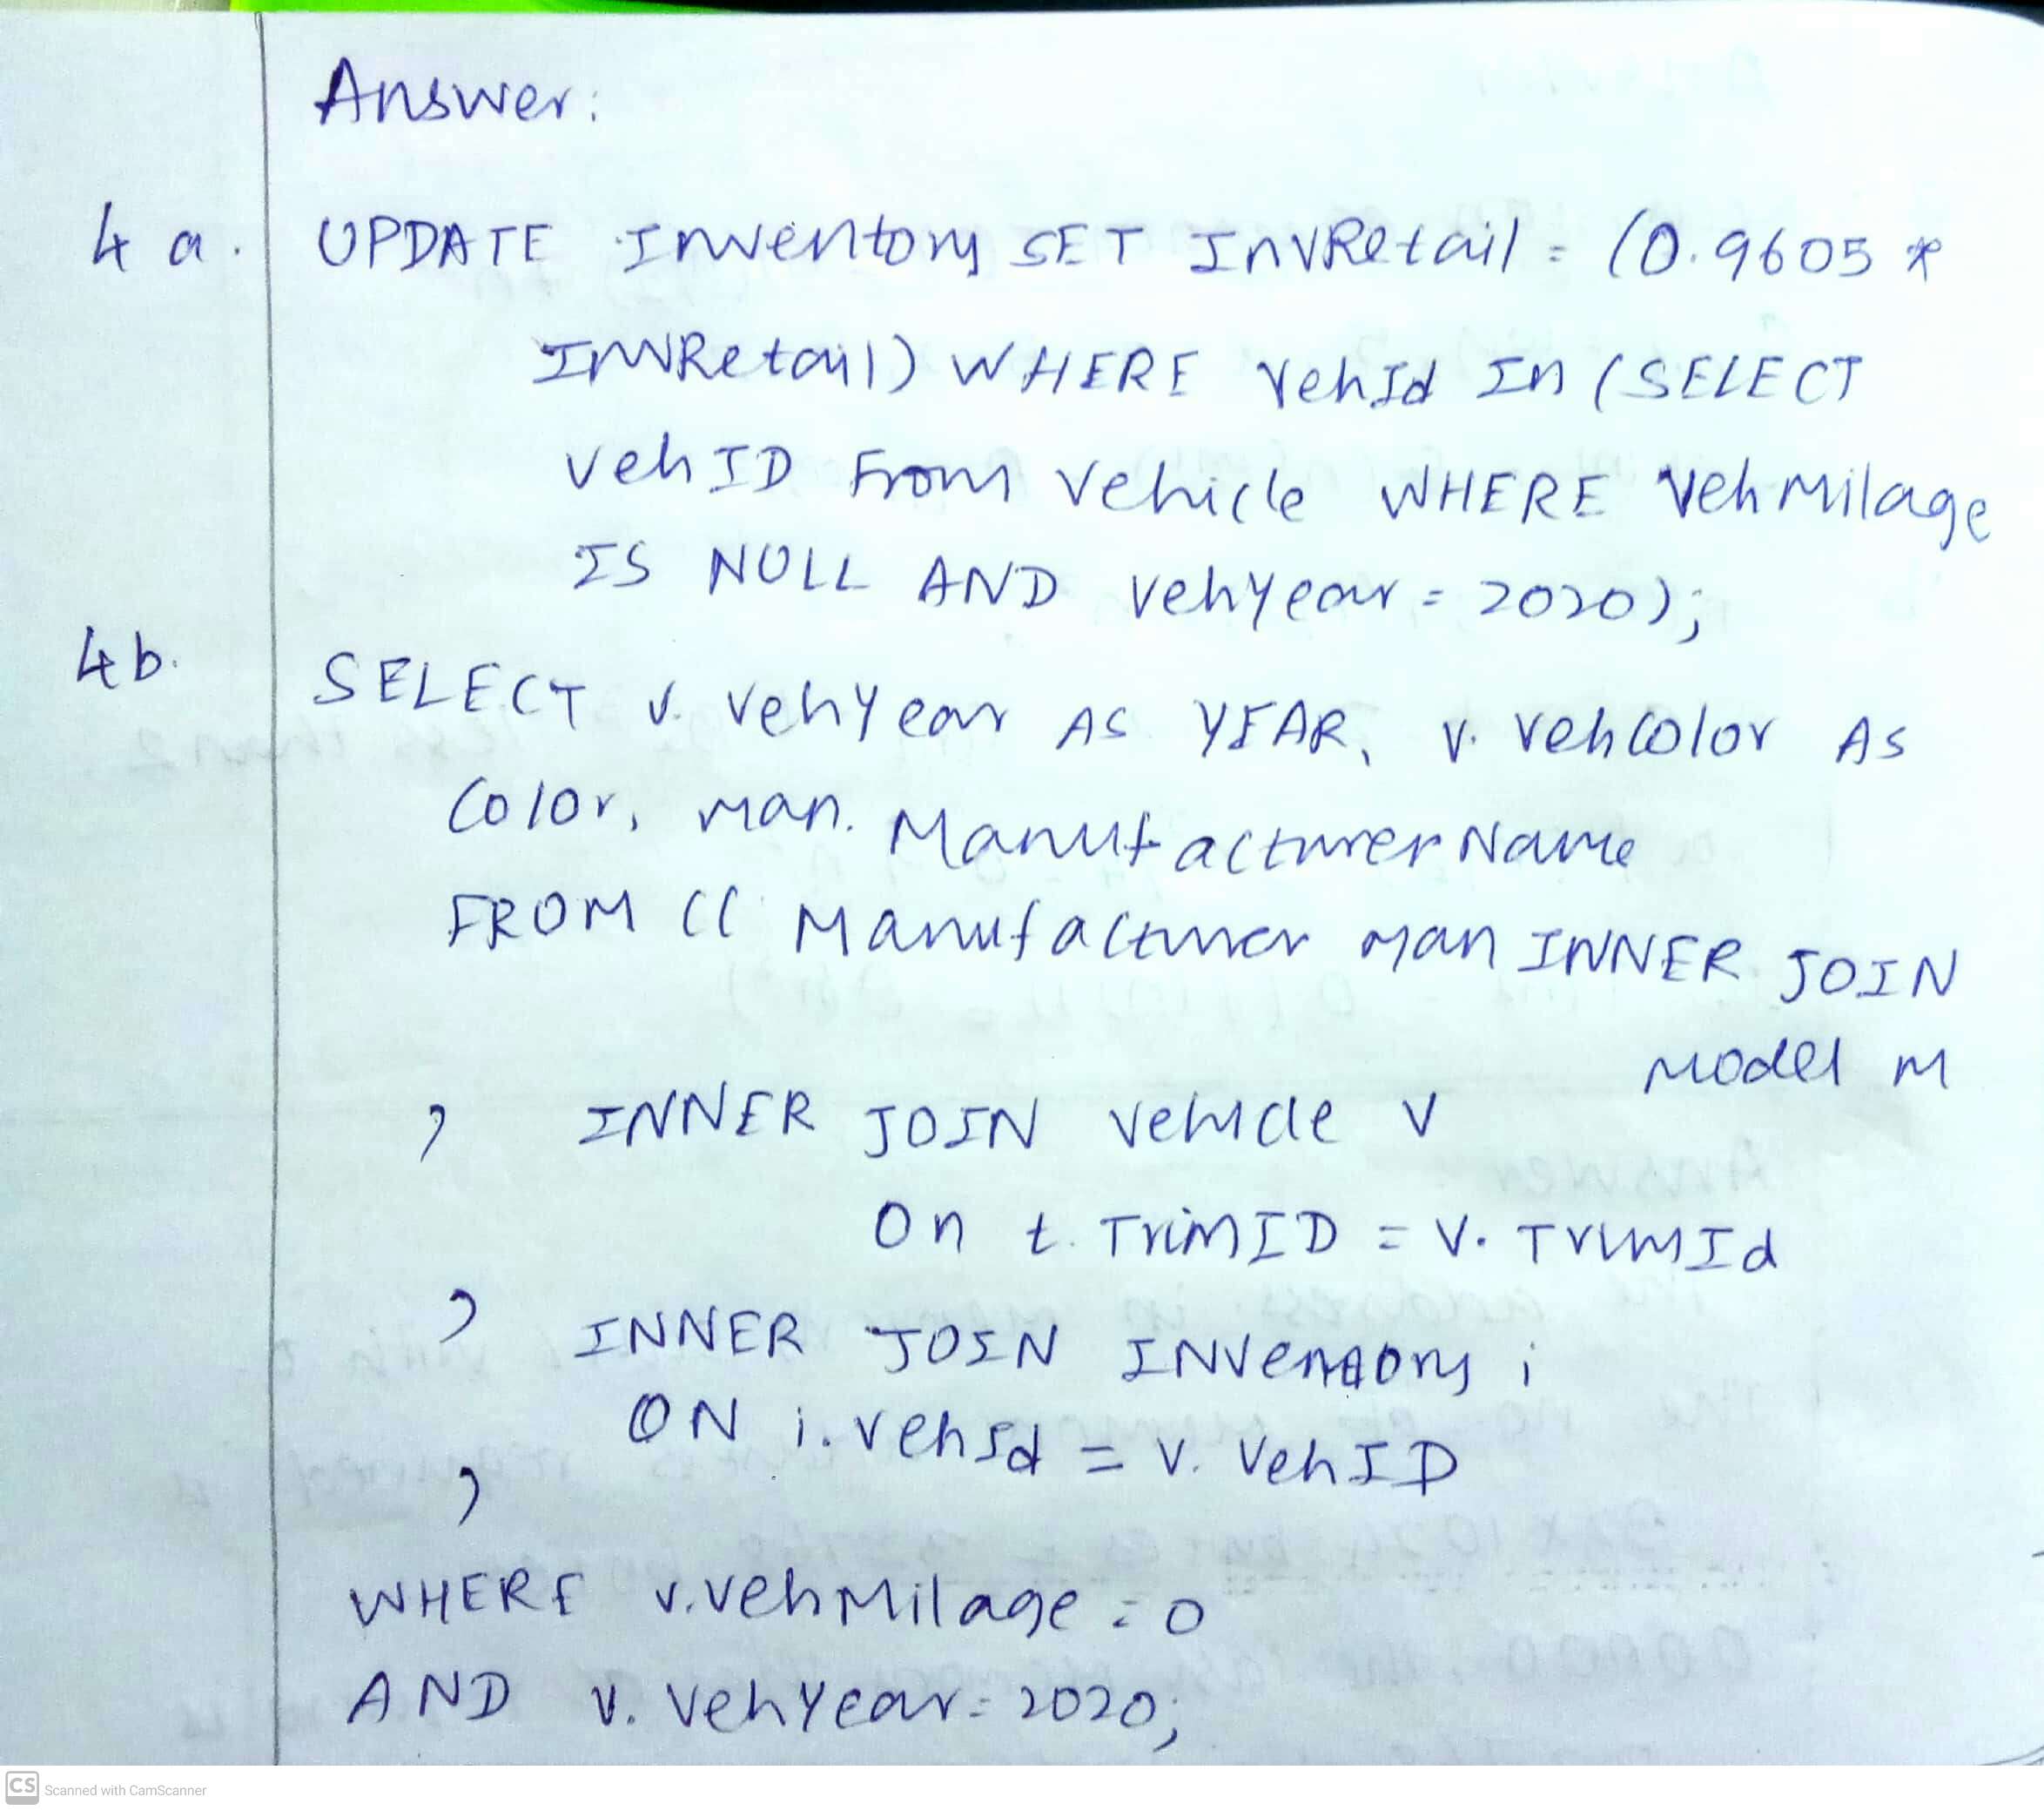 Answer:
4a. UPDATE Inventory SET InvRetail = (0.9605 *
InvRetail) WHERE VehId In (SELECT
vehID From vehicle WHERE VehMilage
IS NULL AND vehyear = 2020);
4b. SELECT v. vehyear AS YEAR, v. vehcolor AS
Color, man. ManufacturerName
FROM (( Manufacturer man INNER JOIN
Model m
) INNER JOIN vehicle v
On t. TrimID = v. TrimId
) INNER JOIN INventory i
ON i. vehId = v. VehID
)
WHERE v.vehMilage = 0
AND v. vehyear = 2020;
CS Scanned with CamScanner